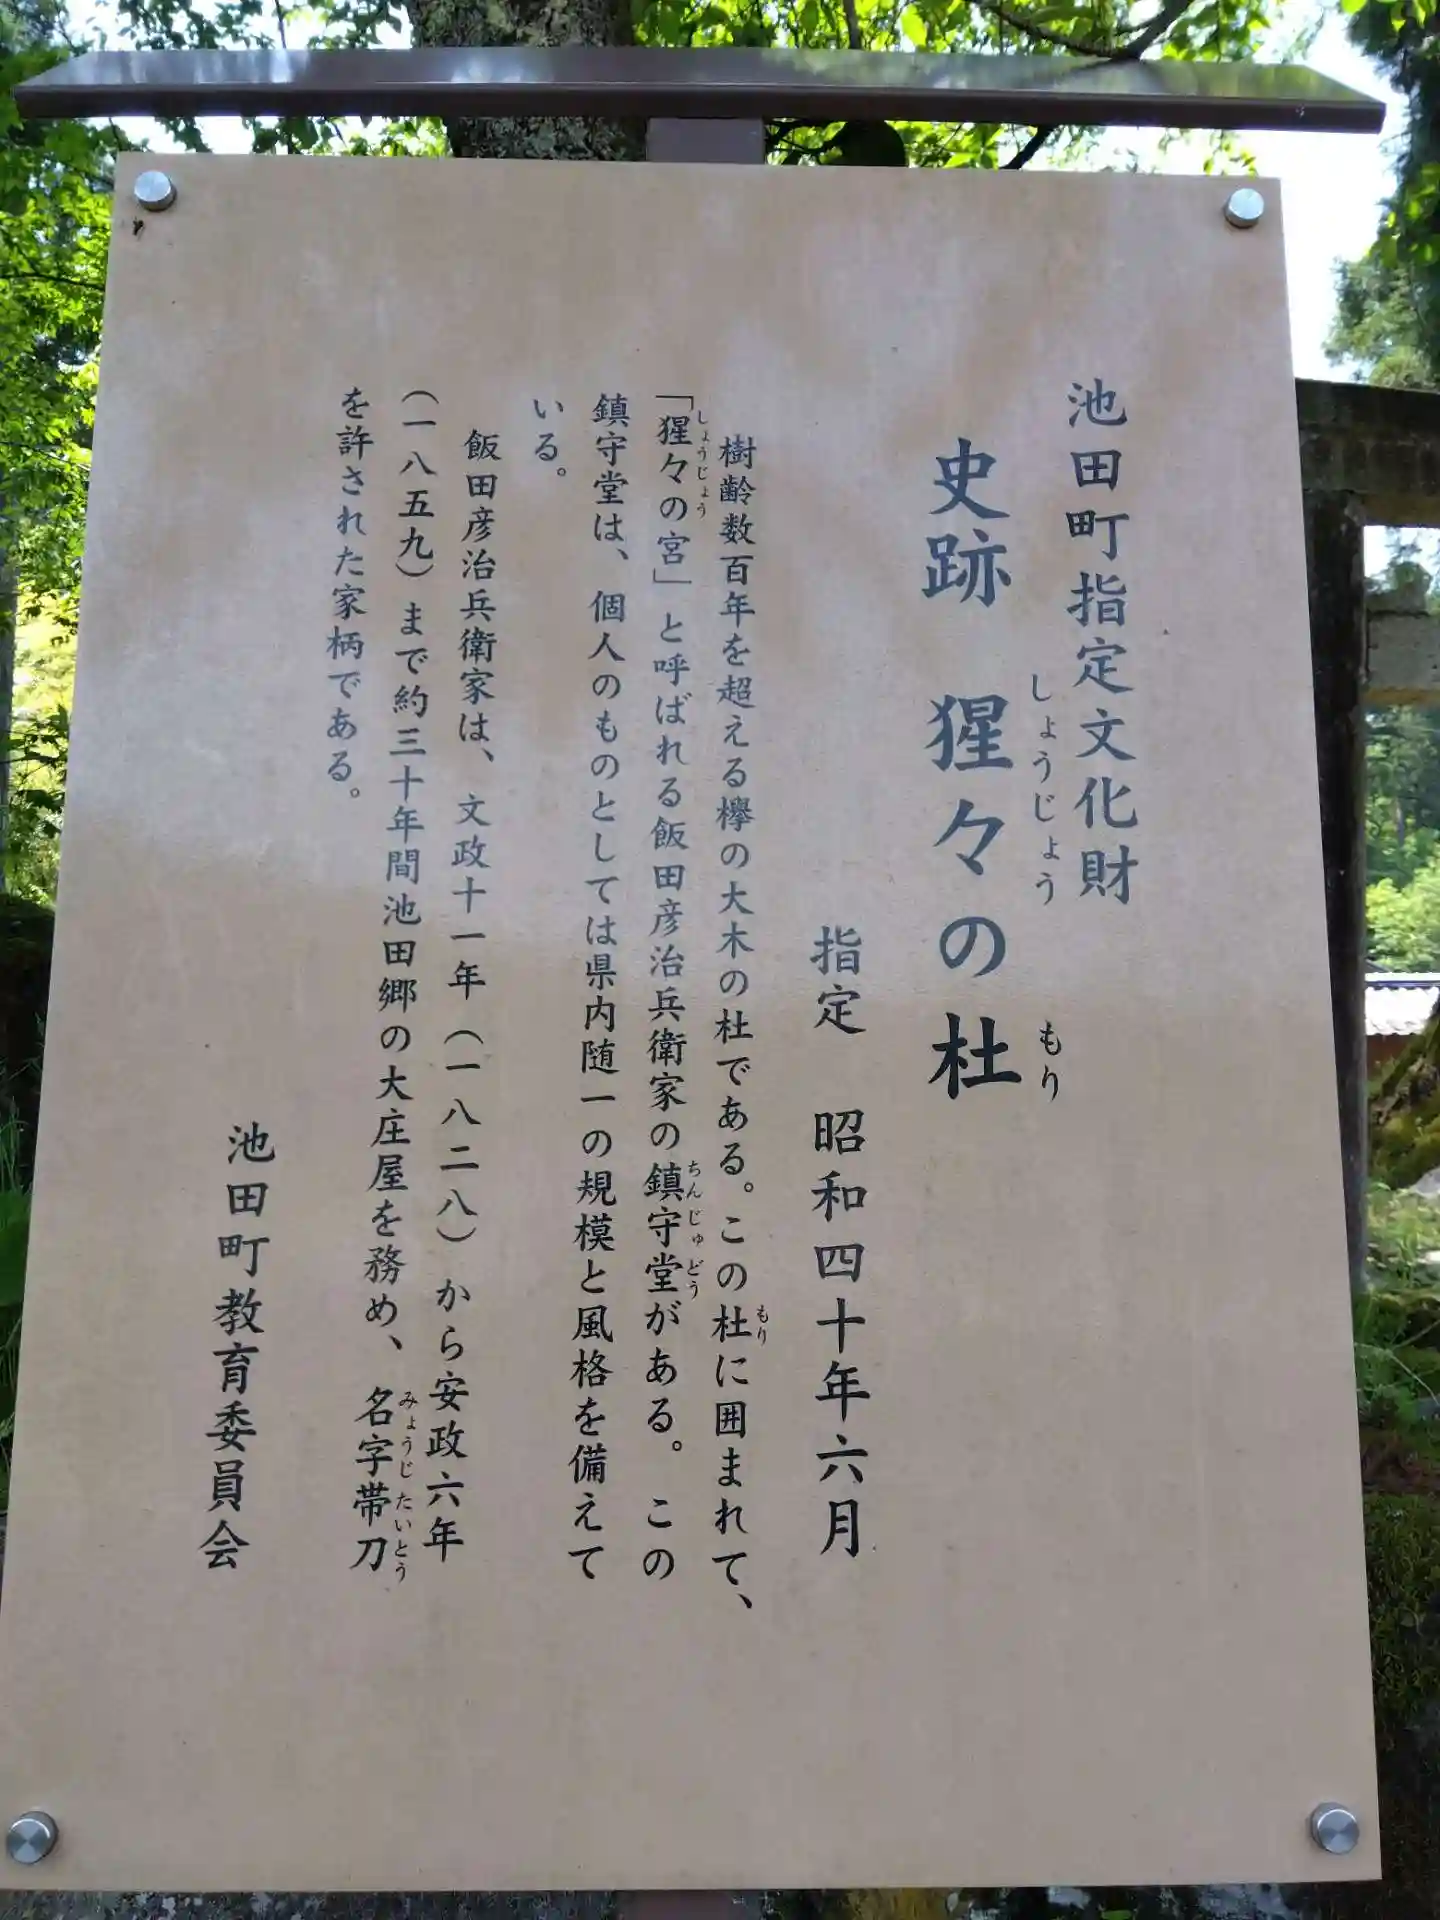 池田町指定文化財
史跡 猩々の杜
しょうじょう もり
指定 昭和四十年六月
樹齢数百年を超える欅の大木の杜である。この杜に囲まれて、
もり
「猩々の宮」と呼ばれる飯田彦治兵衛家の鎮守堂がある。この
しょうじょう ちんじゅどう
鎮守堂は、個人のものとしては県内随一の規模と風格を備えて
いる。
飯田彦治兵衛家は、文政十一年(一八二八)から安政六年
(一八五九)まで約三十年間池田郷の大庄屋を務め、名字帯刀
みょうじたいとう
を許された家柄である。
池田町教育委員会